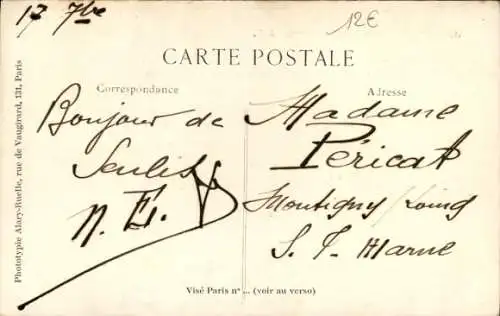 17 7bre
12€
CARTE POSTALE
Correspondance
Adresse
Bonjour de
Senlis
N. E.
Madame
Péricat
Montigny / Loing
S. T. Marne
Phototypie Alary-Ruelle, rue de Vaugirard, 131, Paris
Visé Paris n° ... (voir au verso)